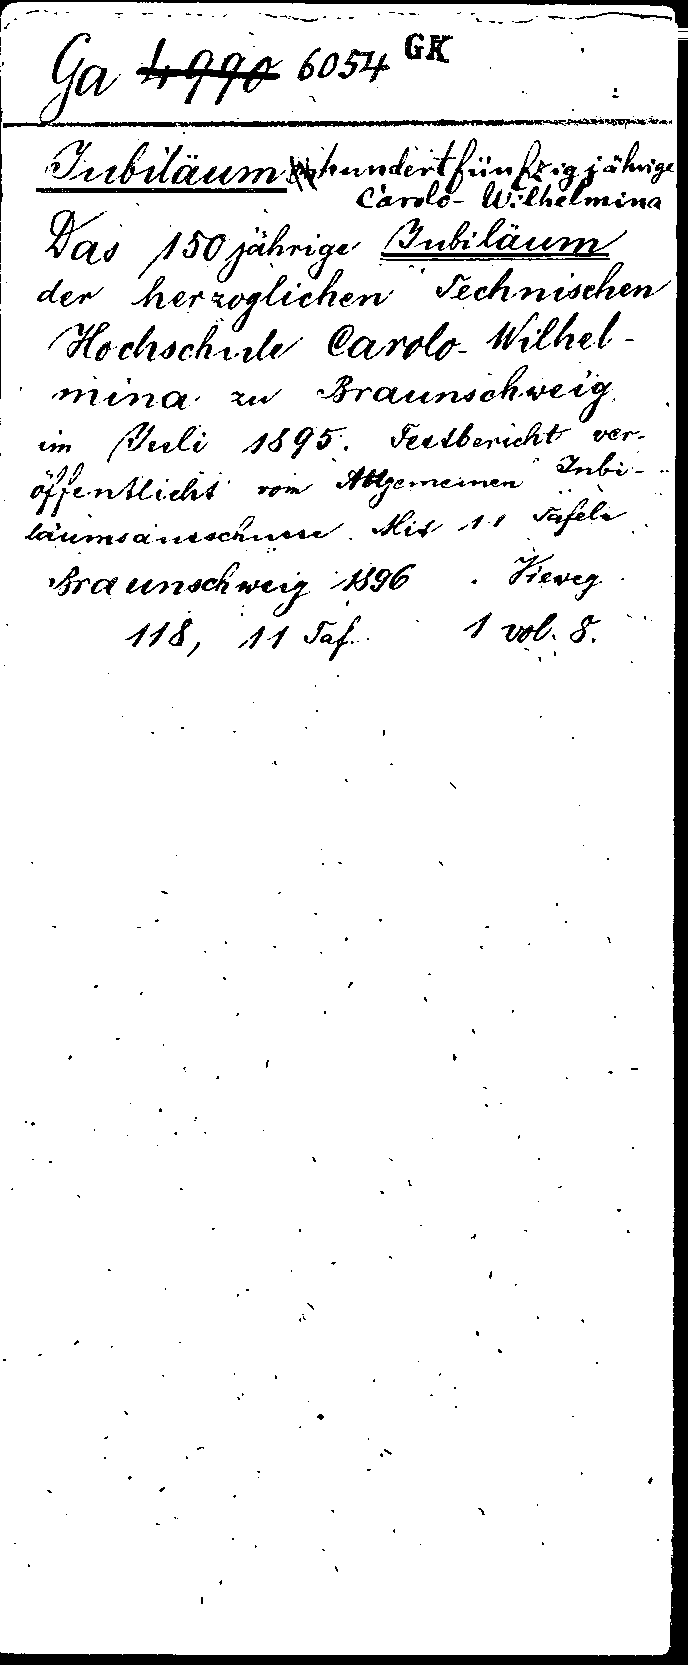 Ga 4990 6054 GK
Jubiläum hundertfünfzigjährige
Carolo-Wilhelmina
Das 150jährige Jubiläum
der herzoglichen Technischen
Hochschule Carolo-Wilhel-
mina zu Braunschweig
im Juli 1895. Festbericht ver-
öffentlicht vom Allgemeinen Jubi-
läumsausschusse. Mit 11 Tafeln
Braunschweig 1896. Vieweg
118, 11 Taf. 1 vol. 8.